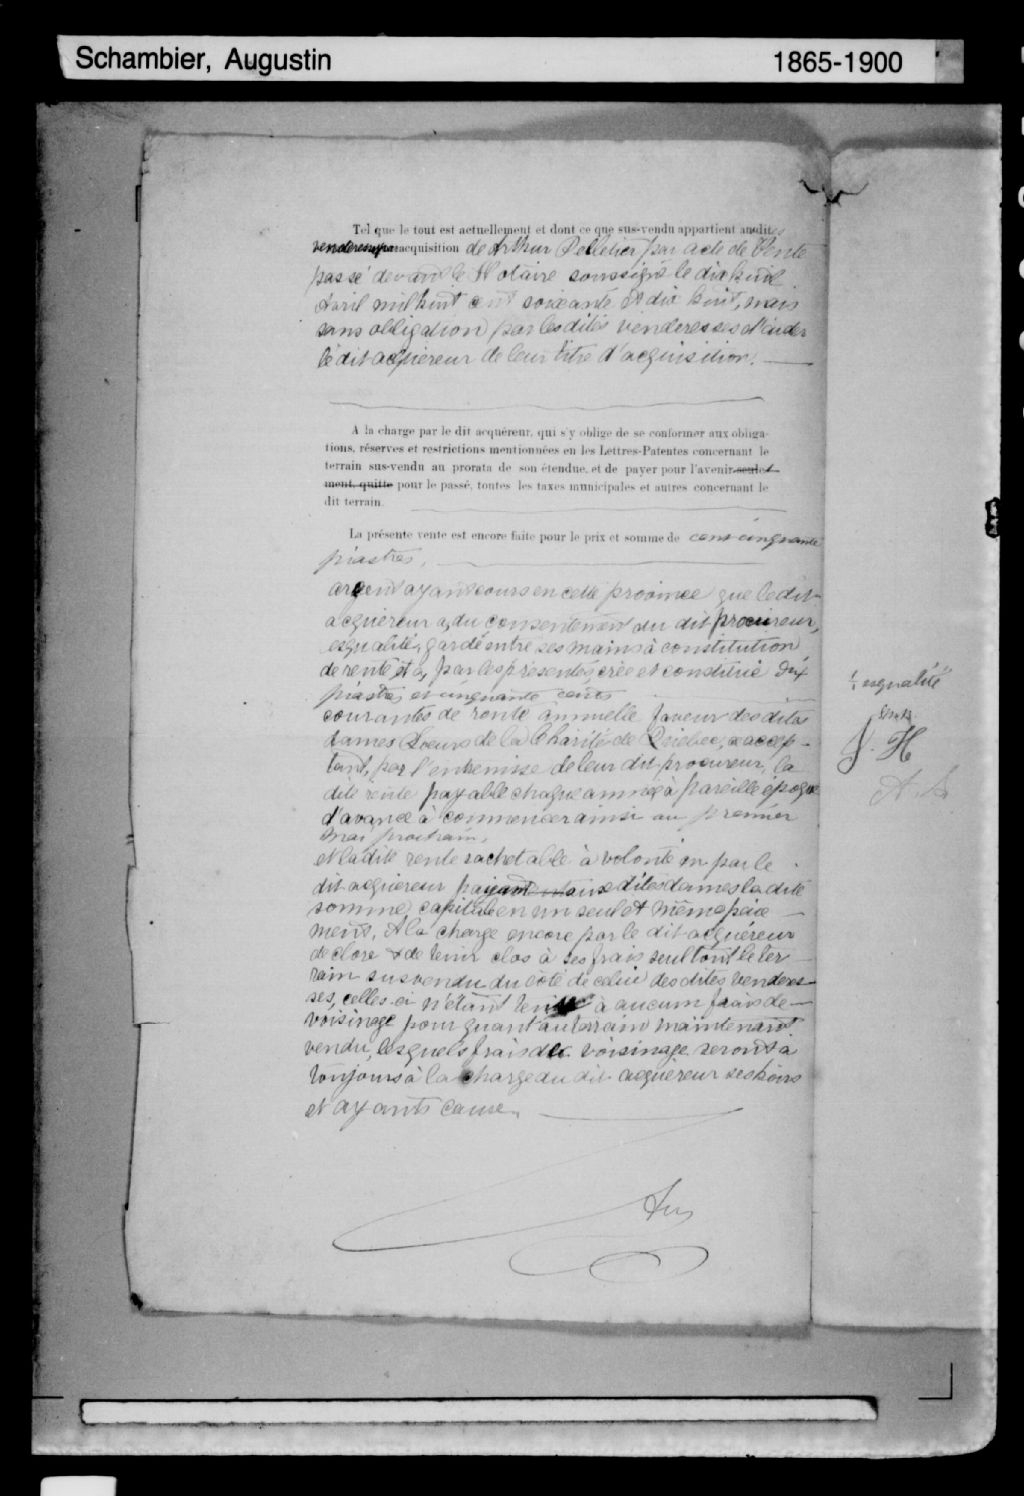 Schambier, Augustin 1865-1900
Tel que le tout est actuellement et dont ce que sus-vendu appartient audites
venderesses par acquisition de Arthur Pelletier par acte de Vente
passé devant le Notaire soussigné le dix huit
Avril mil huit cent soixante et dix huit, mais
sans obligation par les dites venderesses d'aider
le dit acquéreur de leur titre d'acquisition.
A la charge par le dit acquéreur, qui s'y oblige de se conformer aux obliga-
tions, réserves et restrictions mentionnées en les Lettres-Patentes concernant le
terrain sus-vendu au prorata de son étendue, et de payer pour l'avenir seule-
ment, quitte pour le passé, toutes les taxes municipales et autres concernant le
dit terrain.
La présente vente est encore faite pour le prix et somme de cent cinquante
piastres,
argent ayant cours en cette province que le dit
acquéreur a, du consentement du dit procureur,
esqualité, gardé entre ses mains à constitution
de rente et a, par les présentes, créé et constitué
piastres et cinquante cents
courantes de rente annuelle faveur des dites
Dames Soeurs de la Charité de Québec, accep-
tant, par l'entremise de leur dit procureur, la
dite rente payable chaque année à pareille époque
d'avance à commencer ainsi au premier
Mai prochain,
et la dite rente rachetable à volonté par le
dit acquéreur payant aux dites dames la dite
somme capitale en un seul et même paie-
ment. A la charge encore par le dit acquéreur
de clore & de tenir clos à ses frais seul tout le ter
rain susvendu du côté de celui des dites venderes-
ses, celles-ci n'étant à aucun frais de
voisinage pour quant au terrain maintenant
vendu, lesquels frais de voisinage seront à
toujours à la charge du dit acquéreur ses hoirs
et ayants cause.
esqualité
J. H
A. S.